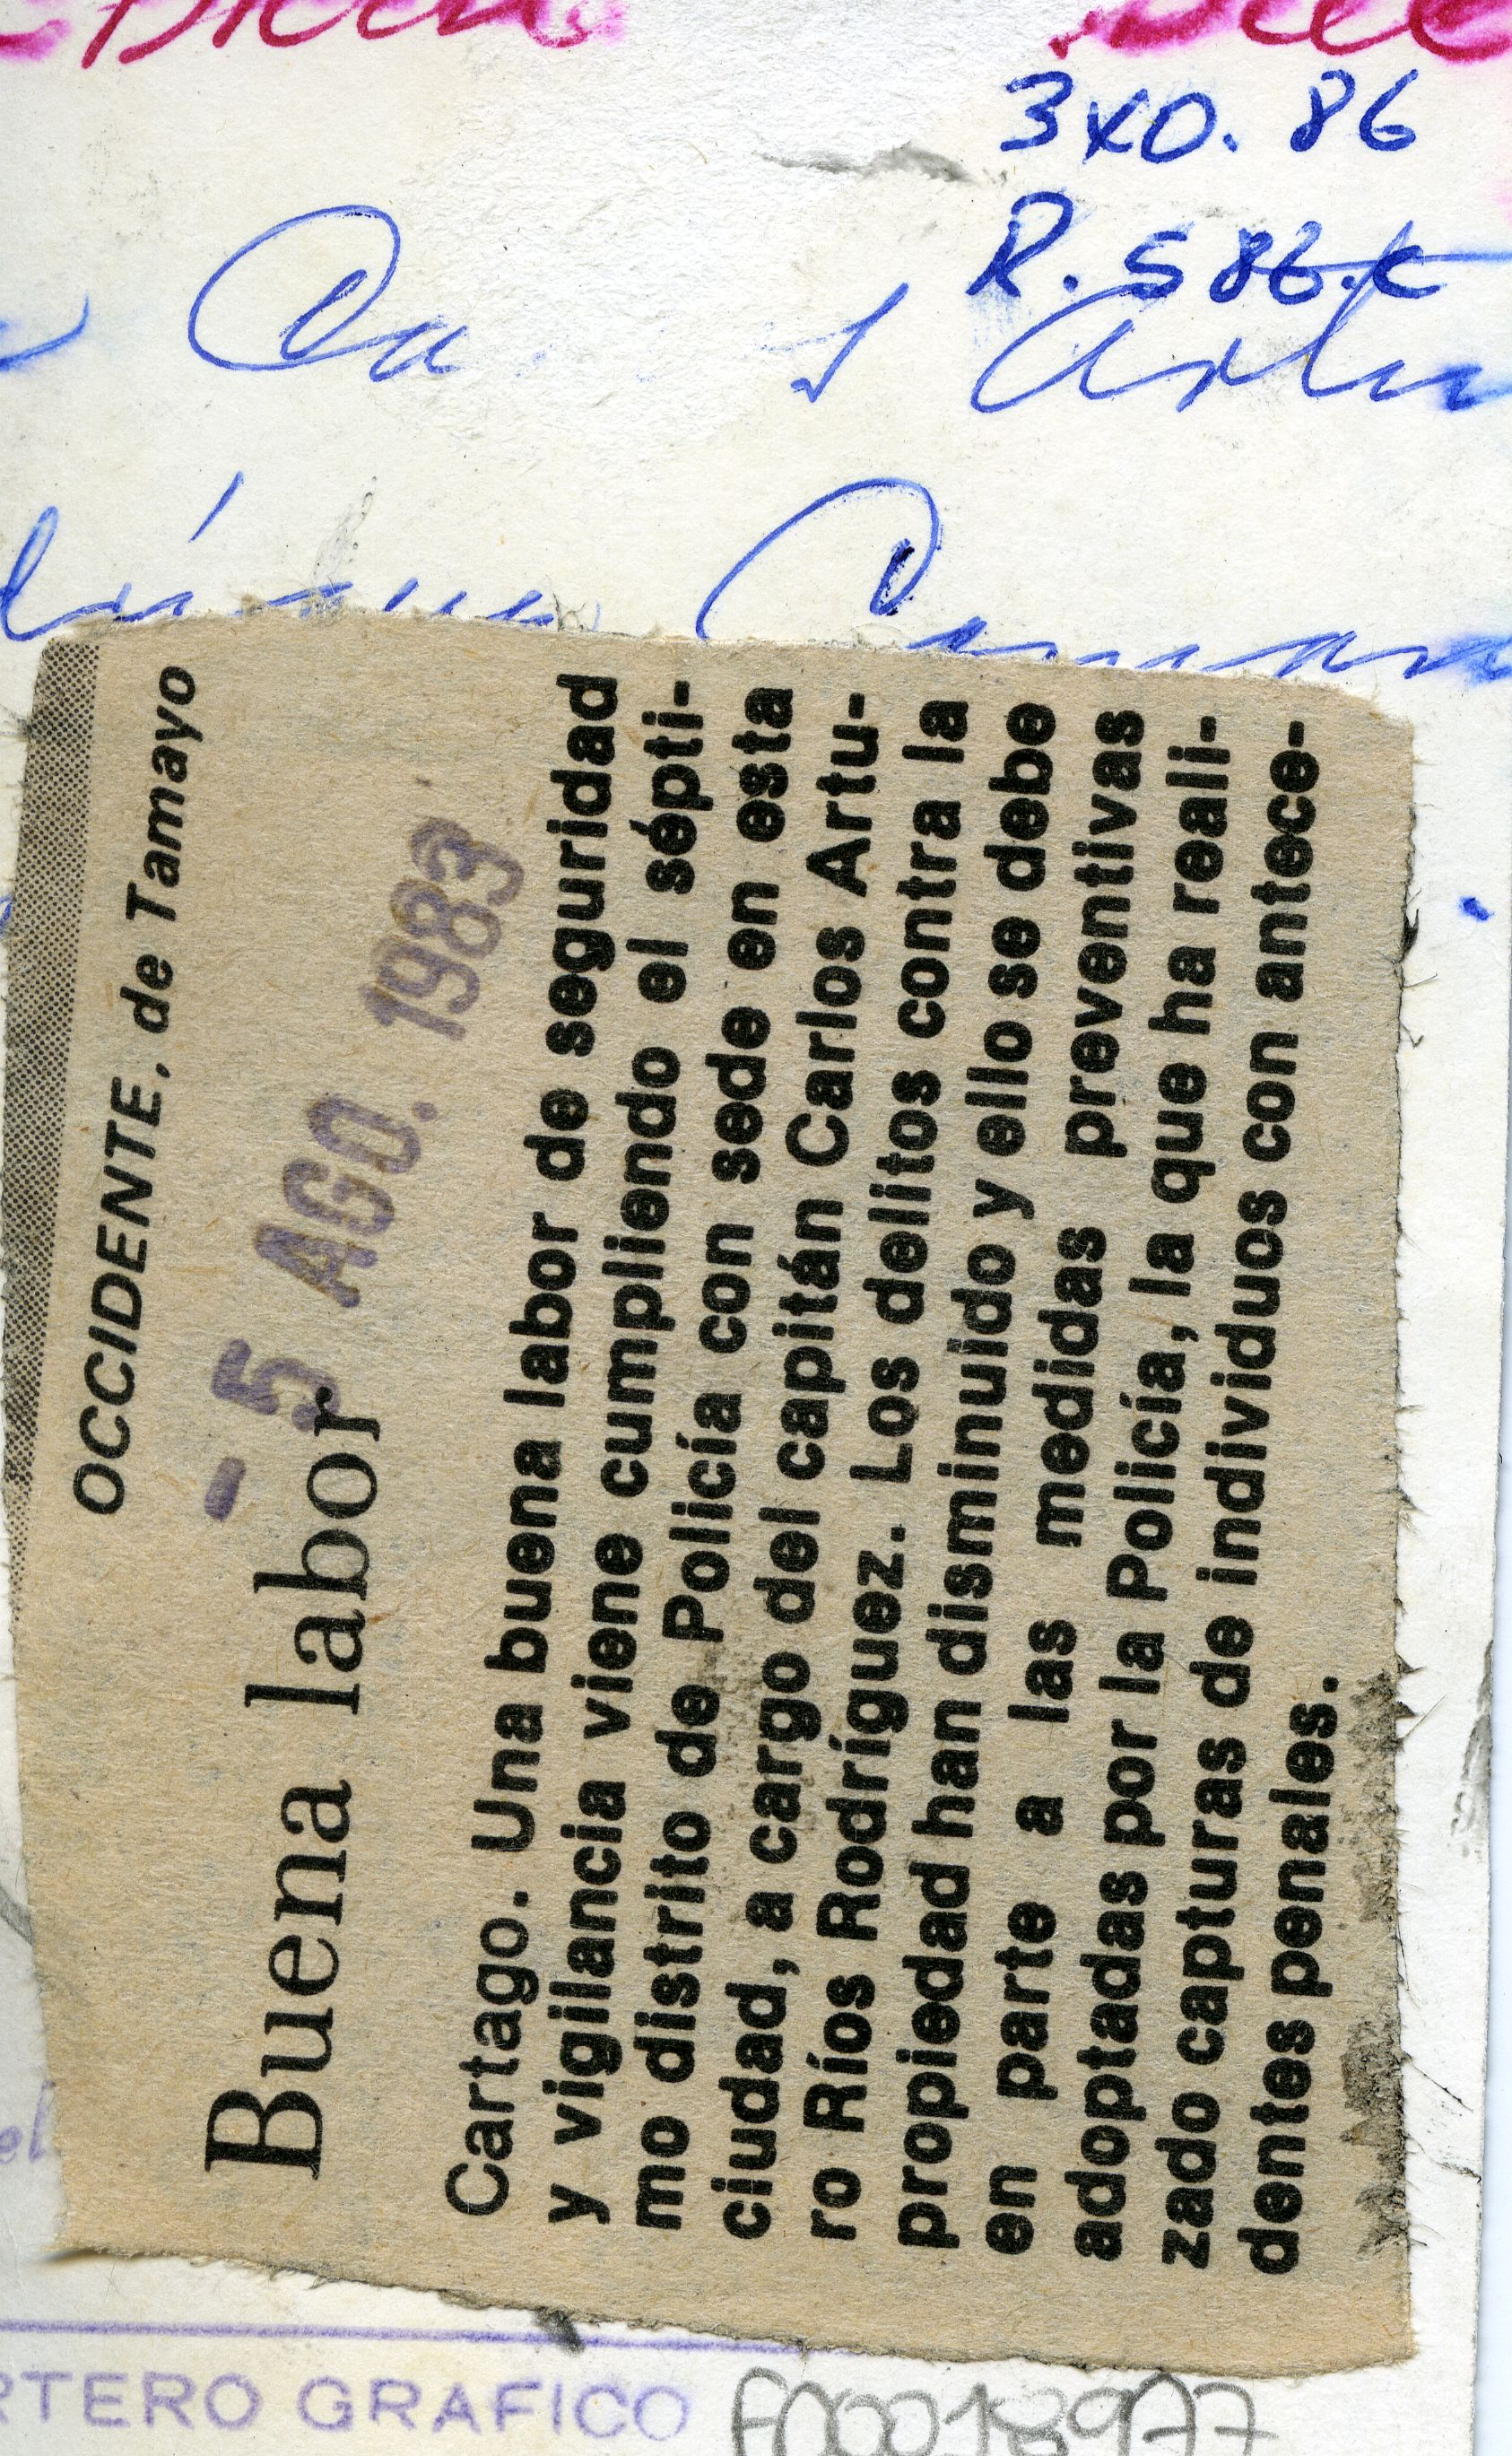 3XO. 86
R. 586.C
OCCIDENTE, de Tamayo
- 5 AGO. 1983
Buena labor
Cartago. Una buena labor de seguridad
y vigilancia viene cumpliendo el sépti-
mo distrito de Policía con sede en esta
ciudad, a cargo del capitán Carlos Artu-
ro Ríos Rodríguez. Los delitos contra la
propiedad han disminuido y ello se debe
en parte a las medidas preventivas
adoptadas por la Policía, la que ha reali-
zado capturas de individuos con antece-
dentes penales.
RTERO GRAFICO